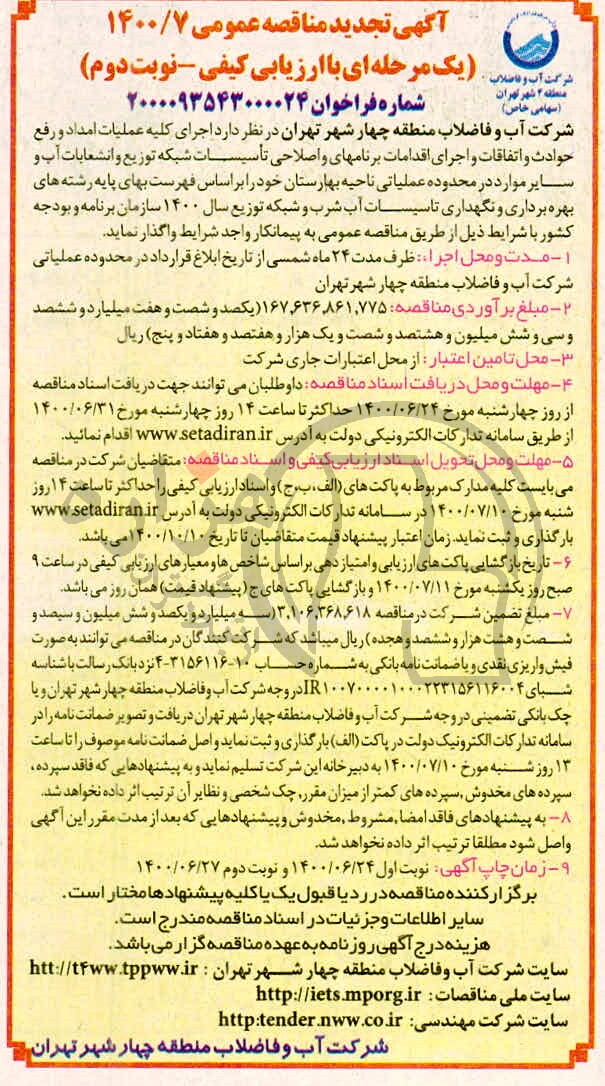 آگهی تجدید مناقصه عمومی ۱۴۰۰/۷
(یک مرحله ای با ارزیابی کیفی - نوبت دوم)
شماره فراخوان ۲۰۰۰۰۹۳۵۴۳۰۰۰۰۲۴
شرکت آب و فاضلاب
منطقه ۴ شهر تهران
(سهامی خاص)
شرکت آب و فاضلاب منطقه چهار شهر تهران در نظر دارد اجرای کلیه عملیات امداد و رفع
حوادث و اتفاقات و اجرای اقدامات برنامهای و اصلاحی تأسیسات شبکه توزیع و انشعابات آب و
سایر موارد در محدوده عملیاتی ناحیه بهارستان خود را بر اساس فهرست بهای پایه رشته های
بهره برداری و نگهداری تاسیسات آب شرب و شبکه توزیع سال ۱۴۰۰ سازمان برنامه و بودجه
کشور با شرایط ذیل از طریق مناقصه عمومی به پیمانکار واجد شرایط واگذار نماید.
۱- مدت و محل اجراء: ظرف مدت ۲۴ ماه شمسی از تاریخ ابلاغ قرارداد در محدوده عملیاتی
شرکت آب و فاضلاب منطقه چهار شهر تهران
۲- مبلغ برآوردی مناقصه: ۱۶۷,۶۳۶,۸۶۱,۷۷۵ (یکصد و شصت و هفت میلیارد و ششصد
و سی و شش میلیون و هشتصد و شصت و یک هزار و هفتصد و هفتاد و پنج) ریال
۳- محل تامین اعتبار: از محل اعتبارات جاری شرکت
۴- مهلت و محل دریافت اسناد مناقصه: داوطلبان می توانند جهت دریافت اسناد مناقصه
از روز چهارشنبه مورخ ۱۴۰۰/۰۶/۲۴ حداکثر تا ساعت ۱۴ روز چهارشنبه مورخ ۱۴۰۰/۰۶/۳۱
از طریق سامانه تدارکات الکترونیکی دولت به آدرس www.setadiran.ir اقدام نمائید.
۵- مهلت و محل تحویل اسناد ارزیابی کیفی و اسناد مناقصه: متقاضیان شرکت در مناقصه
می بایست کلیه مدارک مربوط به پاکت های (الف، ب، ج) و اسناد ارزیابی کیفی را حداکثر تا ساعت ۱۴ روز
شنبه مورخ ۱۴۰۰/۰۷/۱۰ در سامانه تدارکات الکترونیکی دولت به آدرس www.setadiran.ir
بارگذاری و ثبت نماید. زمان اعتبار پیشنهاد قیمت متقاضیان تا تاریخ ۱۴۰۰/۱۰/۱۰ می باشد.
۶- تاریخ بازگشایی پاکت های ارزیابی و امتیاز دهی بر اساس شاخص ها و معیارهای ارزیابی کیفی در ساعت ۹
صبح روز یکشنبه مورخ ۱۴۰۰/۰۷/۱۱ و بازگشایی پاکت های ج (پیشنهاد قیمت) همان روز می باشد.
۷- مبلغ تضمین شرکت در مناقصه ۳,۱۰۶,۳۶۸,۶۱۸ (سه میلیارد و یکصد و شش میلیون و سیصد و
شصت و هشت هزار و ششصد و هجده) ریال میباشد که شرکت کنندگان در مناقصه می توانند به صورت
فیش واریزی نقدی و یا ضمانت نامه بانکی به شماره حساب ۱۰-۳۱۵۶۱۱۶-۴ نزد بانک رسالت با شناسه
شبای IR۱۰۰۷۰۰۰۰۱۰۰۰۲۲۳۱۵۶۱۱۶۰۰۴ در وجه شرکت آب و فاضلاب منطقه چهار شهر تهران و یا
چک بانکی تضمینی در وجه شرکت آب و فاضلاب منطقه چهار شهر تهران دریافت و تصویر ضمانت نامه را در
سامانه تدارکات الکترونیک دولت در پاکت (الف) بارگذاری و ثبت نماید و اصل ضمانت نامه موصوف را تا ساعت
۱۳ روز شنبه مورخ ۱۴۰۰/۰۷/۱۰ به دبیرخانه این شرکت تسلیم نماید و به پیشنهادهایی که فاقد سپرده،
سپرده های مخدوش، سپرده های کمتر از میزان مقرر، چک شخصی و نظایر آن ترتیب اثر داده نخواهد شد.
۸- به پیشنهادهای فاقد امضا، مشروط، مخدوش و پیشنهادهایی که بعد از مدت مقرر این آگهی
واصل شود مطلقا ترتیب اثر داده نخواهد شد.
۹- زمان چاپ آگهی: نوبت اول ۱۴۰۰/۰۶/۲۴ و نوبت دوم ۱۴۰۰/۰۶/۲۷
برگزار کننده مناقصه در رد یا قبول یک یا کلیه پیشنهادها مختار است.
سایر اطلاعات و جزئیات در اسناد مناقصه مندرج است.
هزینه درج آگهی روزنامه به عهده مناقصه گزار می باشد.
سایت شرکت آب و فاضلاب منطقه چهار شهر تهران: htt://t۴ww.tppww.ir
سایت ملی مناقصات: http://iets.mporg.ir
سایت شرکت مهندسی: http:tender.nww.co.ir
شرکت آب و فاضلاب منطقه چهار شهر تهران